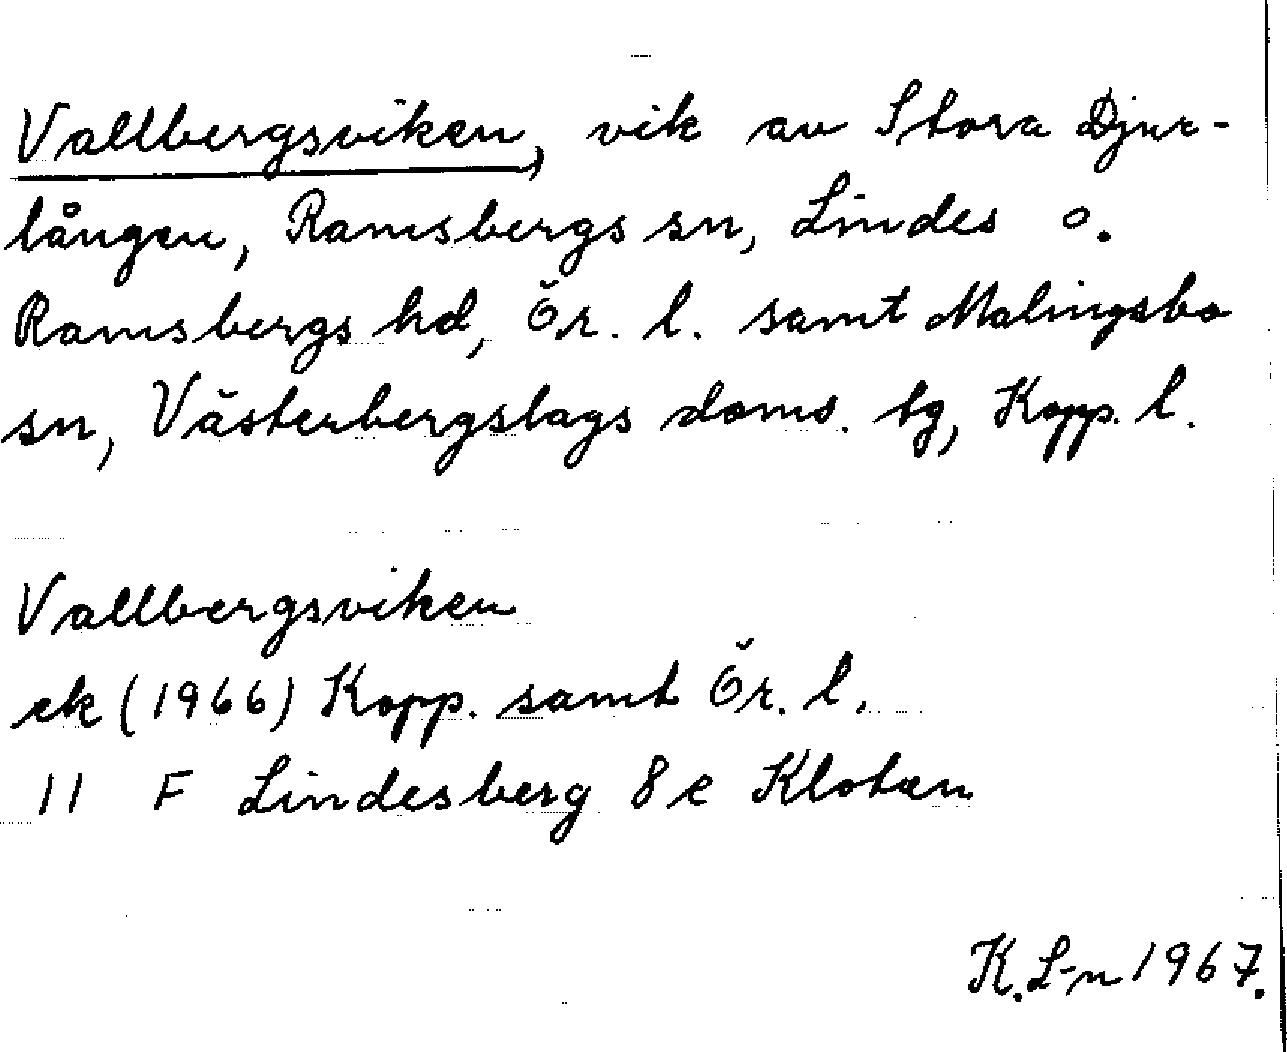 Vallbergsviken, vik av Stora Djur-
lången, Ramsbergs sn, Lindes o.
Ramsbergs hd, Ör. l. samt Malingsbo
sn, Västerbergslags doms. tg, Kopp. l.
Vallbergsviken
ek (1966) Kopp. samt Ör. l.
11 F Lindesberg 8 e Kloten
K. L-n 1967.